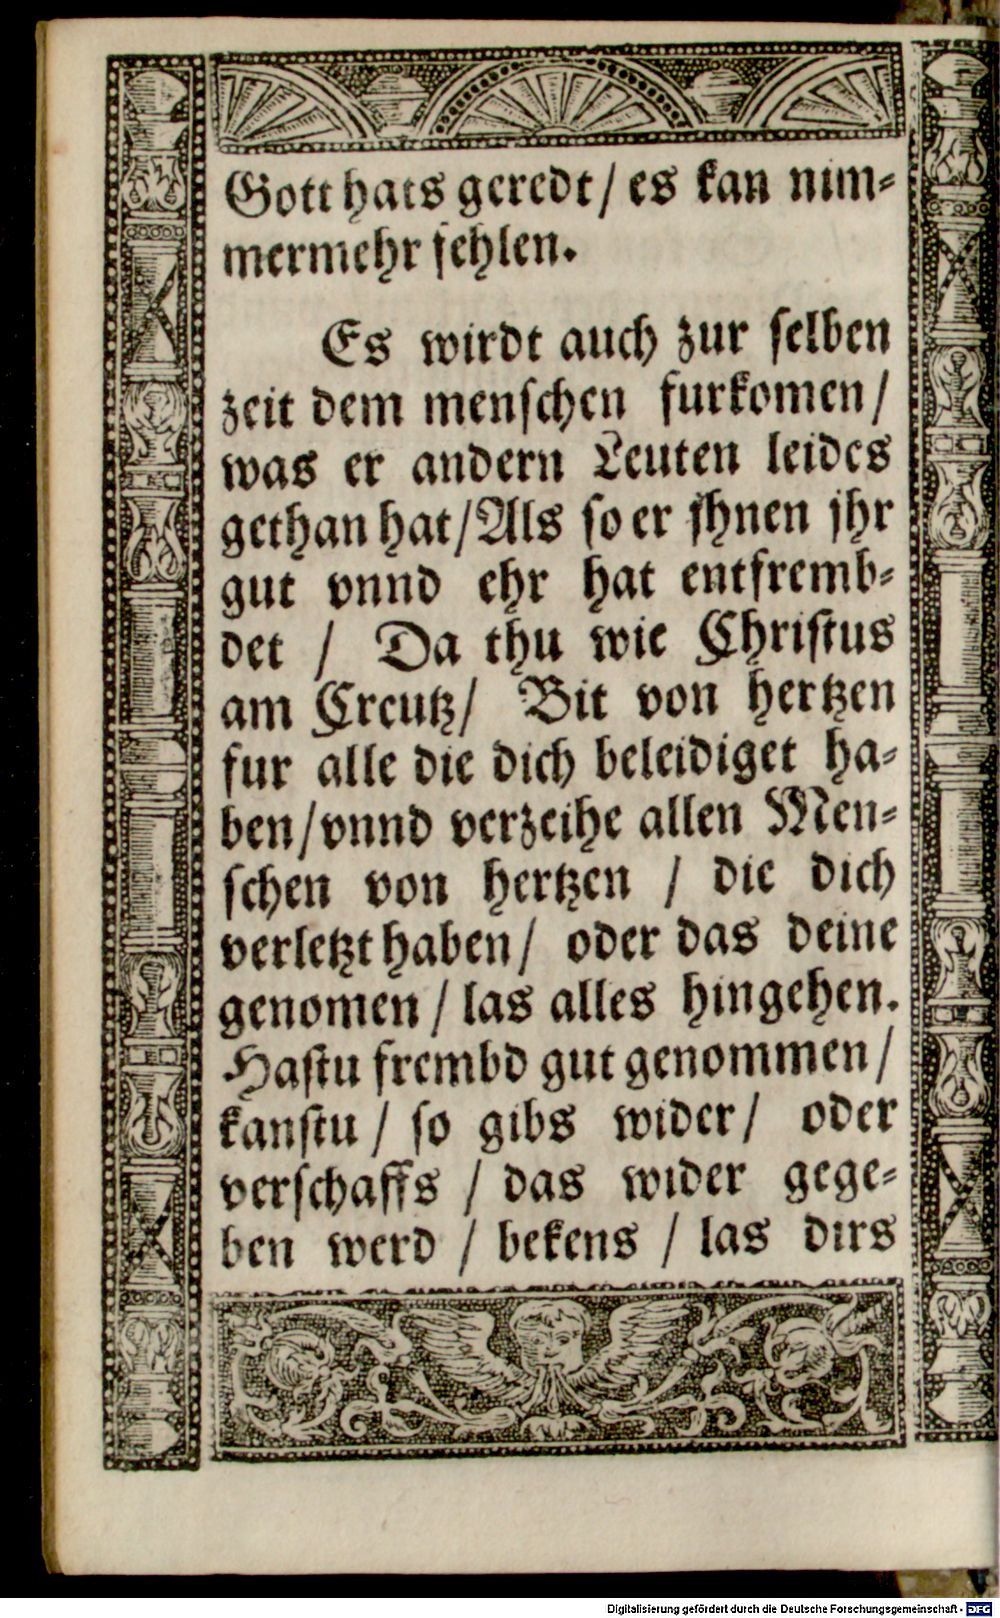 Gott hats geredt/ es kan nim-
mermehr fehlen.
Es wirdt auch zur selben
zeit dem menschen furkomen/
was er andern Leuten leides
gethan hat/Als so er jhnen jhr
gut vnnd ehr hat entfremb-
det / Da thu wie Christus
am Creutz/ Bit von hertzen
fur alle die dich beleidiget ha-
ben/vnnd verzeihe allen Men-
schen von hertzen / die dich
verletzt haben/ oder das deine
genomen / las alles hingehen.
Hastu frembd gut genommen/
kanstu / so gibs wider/ oder
verschaffs / das wider gege-
ben werd / bekens / las dirs
Digitalisierung gefördert durch die Deutsche Forschungsgemeinschaft - DFG